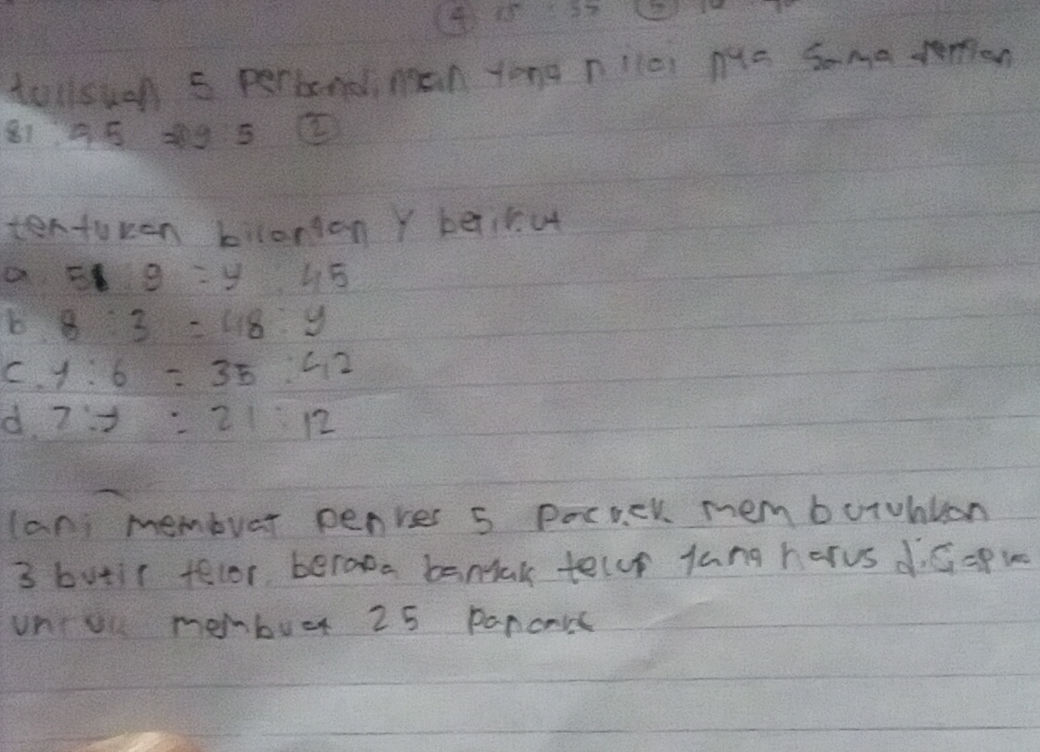 ④ 15 : 35 ⑤
tulisuan 5 perbandiman yang nilai nya sama
81 95 9 5 ②
tentukan bilangan y berikut
a. 5 : 9 = y : 45
b. 8 : 3 = 48 : y
c. y : 6 = 35 : 42
d. 7 : y = 21 : 12
lani membuat 5 membutuhkan
3 butir telor. berapa banyak telur yang harus
untuk membuat 25 pancake